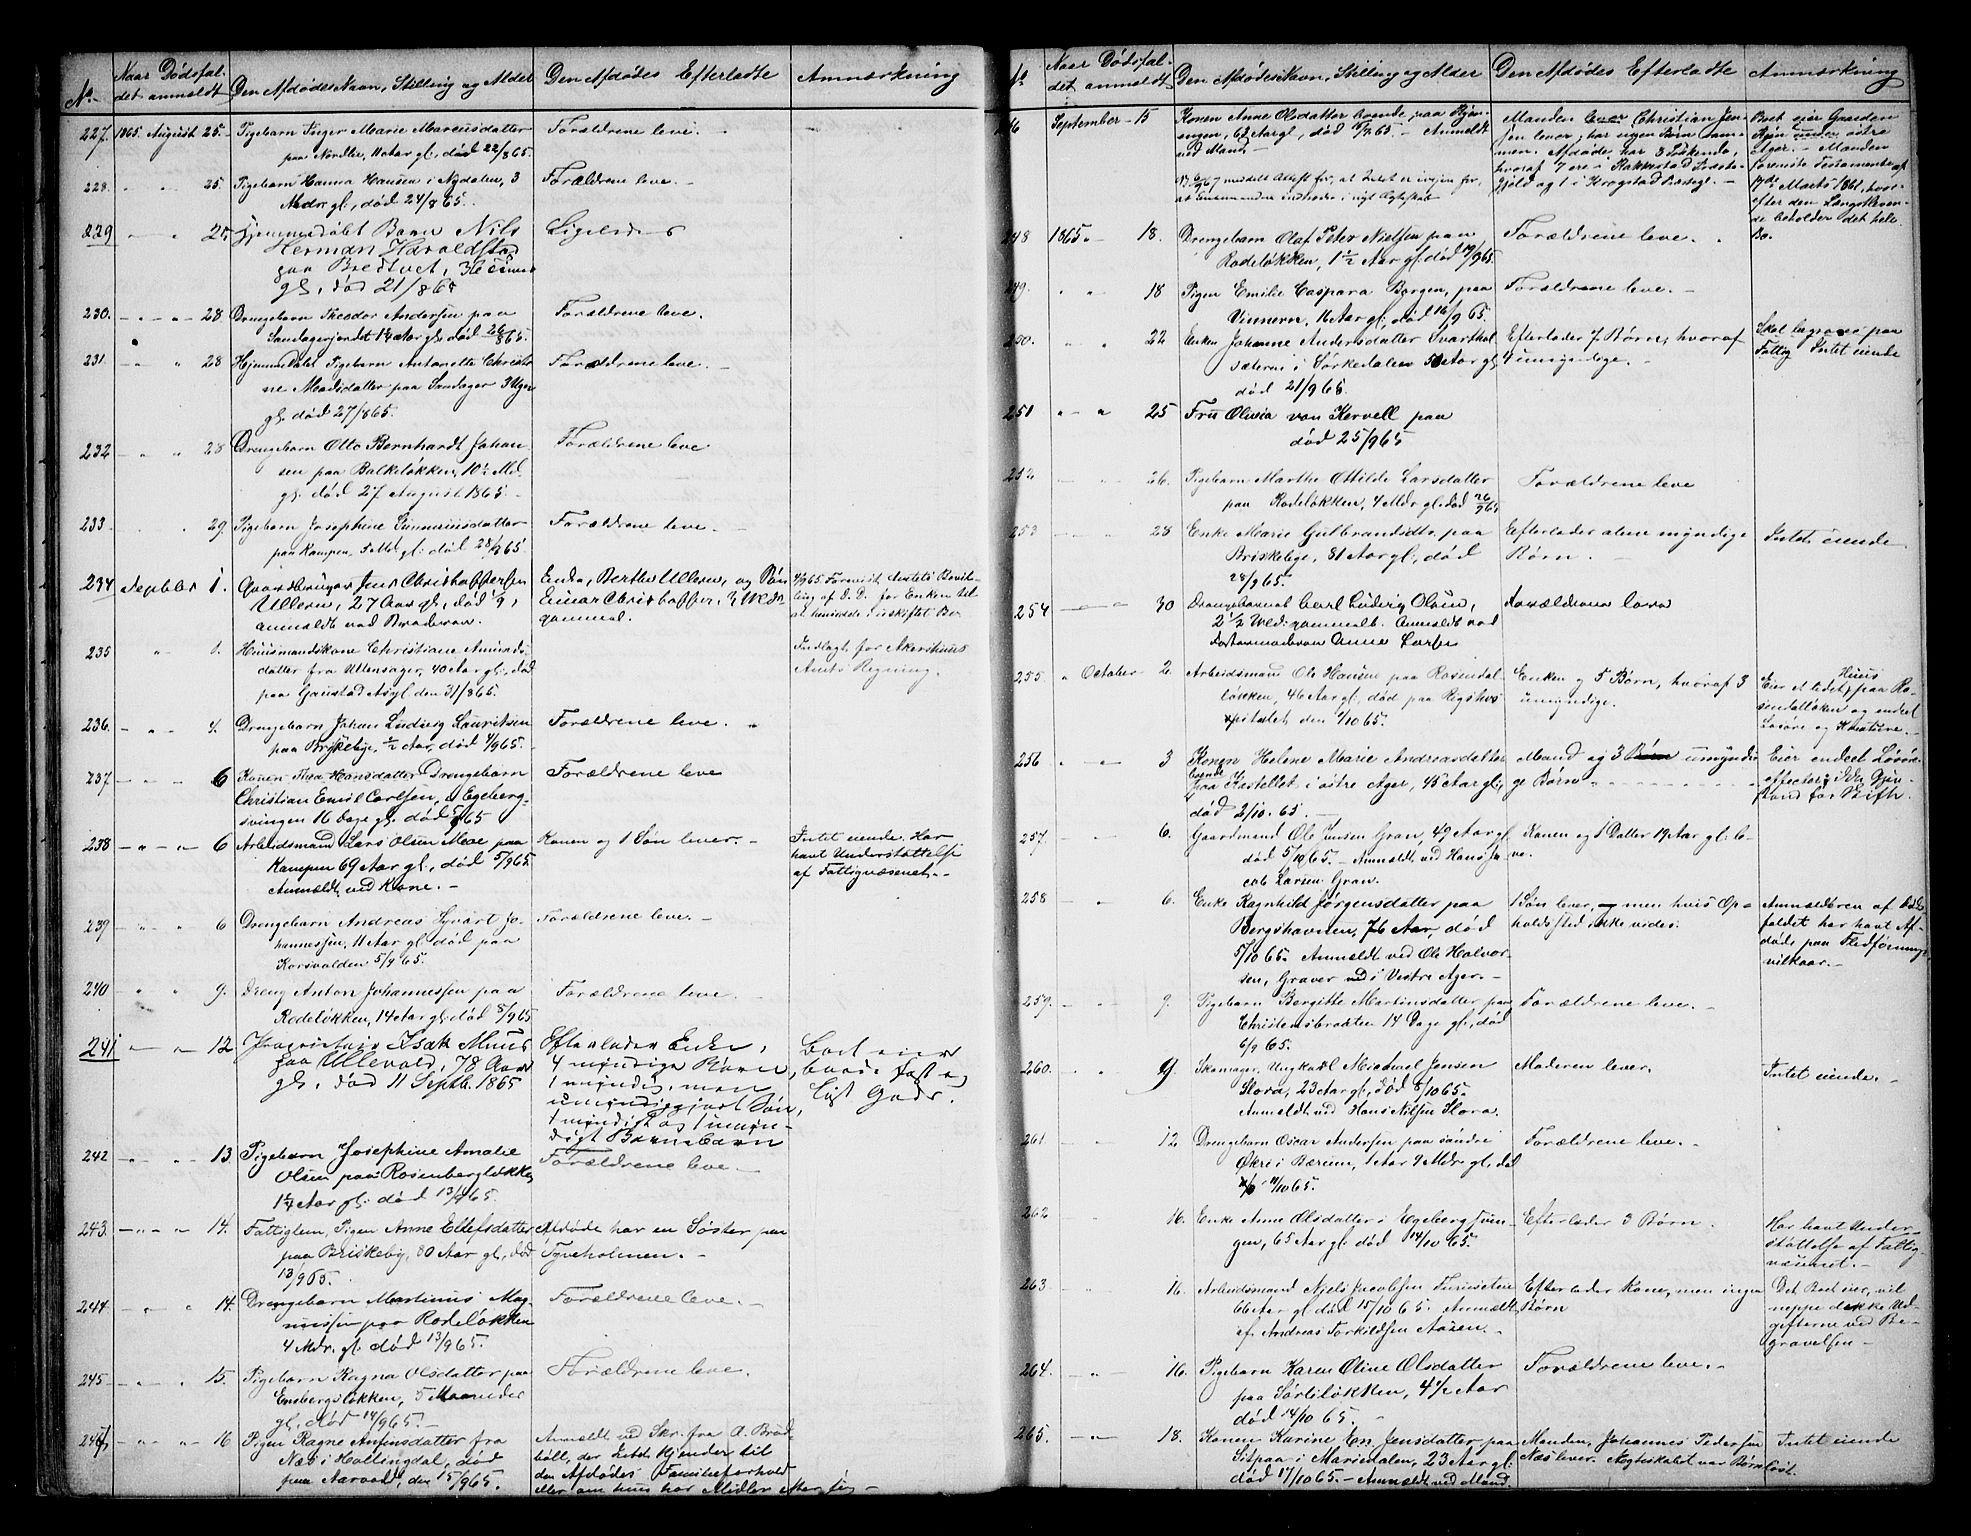 No. Naar Dødsfal- Den Afdødes Navn, Stilling og Alder Den Afdødes Efterladte Anmærkning
det anmeldt
227. 1865. August 25. Pigebarn Inger Marie Marcusdatter Forældrene leve.
paa Nordler, 11 Aar gl, død 22/8 65.
228. 25. Pigebarn Hanna Hansen i Nydalen, 3 Forældrene leve.
Mdr. gl, død 24/8 65.
229 25. Hjemmedøbt Barn Nils
Herman Haraldstad
paa Bredtvet,
gl, død 21/8 65
230. 28 Drengebarn Theodor Andersen paa Forældrene leve.
Sandagerjordet 1¼ Aar gl, død 26/8 65.
231. 28 Hjemmedøbt Pigebarn Antonette Christi- Forældrene leve.
ne Madsdatter paa Sandager 3 Uger
gl. død 27/8 65.
232 28 Drengebarn Otto Bernhardt Johan- Forældrene leve
sen paa Balkeløkken, 10½ Md.
gl. død 27 August 1865.
233 29. Pigebarn Josephine Gunneriusdatter Forældrene leve.
paa Kampen, gl. død 28/8 65.
234 Septbr 1. Gaardbruger Jens Christoffersen Enke, Berthe Ullern, og Søn
Ullern, 27 Aar gl, død
Einar Christoffer, Mdr
anmeldt ved Broderen. gammel.
235 1. Huusmandskone Christiane Amunds- Indlagt for Akershuus
datter fra Ullensager, 40 Aar gl, død Amts Regning.
paa Gaustad Asyl den 31/8 65.
236. 4. Drengebarn Johan Ludvig Lauritsen Forældrene leve.
paa Briskeby, ½ Aar, død 4/9 65.
237 6 Konen Thea Hansdatter Drengebarn Forældrene leve
Christian Emil Carlsen, i Egeberg-
svingen 16 Dage gl, død 5/9 65
238 6 Arbeidsmand Lars Olsen Moe paa Konen og 1 Søn lever. Intet eiende. Har
Kampen 69 Aar gl, død 5/9 65. havt Understøttelse
Anmeldt ved Kone. af Fattigvæsenet.
239 6 Drengebarn Andreas Syvart Jo- Forældrene leve.
hannessen, 11 Aar gl død paa
Korsvolden 5/9 65.
240 9. Dreng Anton Johannessen paa Forældrene leve.
Rodeløkken, 14 Aar gl. død 8/9 65
241 12. Isak Muus Efterlader Enke, Boet eier
paa Ullevold, 78 Aar 4 myndige Børn, baade fast og
gl, død 11 Septb. 1865 1 myndig, men løst Gods.
umyndiggjort Søn,
1 myndigt og 1 umyn-
digt Barnebarn
242 13. Pigebarn Josephine Amalie Forældrene leve.
Olsen paa Rosenbergløkken
1¼ Aar gl. død 13/9 65.
243. 14. Fattiglem, Pigen Anne Ellefsdatter, Afdøde har en Søster paa
paa Briskeby, 80 Aar gl, død Tyveholmen.
13/9 65.
244. 14. Drengebarn Martinus Mag- Forældrene leve.
nussen paa Rodeløkken
4 Mdr. gl. død 13/9 65.
245 15. Pigebarn Ragna Olsdatter paa Forældrene leve.
Ensbergsløkken, 5 Maaneder
gl, død 14/9 65.
246 16 Pigen Ragne Anfinsdatter fra Anmeldt ved Skr. fra A. Brød-
Næs i Hallingdal, død bøll, der Intet kjender til
paa Aarvold, den 15/9 65. den Afdødes Familieforhold
eller om hun har Midler efter sig
No. Naar Dødsfal- Den Afdødes Navn, Stilling og Alder Den Afdødes Efterladte Anmærkning
det anmeldt
September 15 Konen Anne Olsdatter boende paa Manden Christian Jen- Boet eier Gaarden
62 Aar gl, død 65. Anmeldt sen lever; har ingen Børn sam- østre
ved Mand. men. Afdøde har 8 Søskende, Aker. Manden
hvoraf 7 ere i Rakkestad Præste- foreviste Testamente af
gjeld og 1 i Krogstad Præstegl. 17de Marts 1861, hvor-
efter den Længstleven-
de beholder det hele
Bo.
248 1865. 18. Drengebarn Olaf Peter Nielsen paa Forældrene leve.
Rodeløkken, 1½ Aar gl. død 17/9 65.
249. 18 Pigen Emilie Caspara Borgen, paa Forældrene leve.
Vinnern, 16 Aar gl, død 16/9 65.
250. 22 Enken Johanne Andersdatter Svarthol Efterlader 7 Børn, hvoraf Skal begraves paa
sæterne i Sørkedalen 50 Aar gl, 4 umyndige. Fattig Intet eiende
død 21/9 65.
251 25 Fru Olivia von Kervell paa
død 25/9 65
252 26. Pigebarn Marthe Ottilde Larsdatter Forældrene leve
paa Rodeløkken, 4 Mdr gl. død 26/9 65
253 28 Enke Marie Gulbrandsdtr. paa Efterlader alene myndige Intet eiende
Briskeby, 81 Aar gl, død Børn.
28/9 65.
254 30 Drengebarnet Carl Ludvig Olsen, Forældrene leve
2½ Md: gammelt. Anmeldt ved
Fostermoderen Anne Larsen
255 October 2. Arbeidsmand Ole Hansen paa Rosendal- Enken og 5 Børn, hvoraf 3 Huus
løkken, 46 Aar gl, død paa Rigsho- umyndige. Eier et lidet, paa Ro-
spitalet den 1/10 65. sendalløken og endeel
Løsøre og Kreature.
256 3 Konen Helene Marie Andreasdatter Mand og 3 Børn umyndi- Eier endeel Løsøre-
boende paa Kastellet i østre Aker, 45 Aar gl, ge Børn effecter; Ikke Gjen-
død 2/10. 65. stand for Skifte.
257. 6. Gaardmand Ole Jensen Gran, 49 Aar gl. Konen og 1 Datter 19 Aar gl. le-
død 5/10 65. Anmeldt ved Hans Ja- ve.
cob Larsen Gran.
258 6. Enke Ragnhild Jørgensdatter paa 1 Søn lever, men hvis Op- Anmelderen af Døds-
Bergshavnen, 76 Aar, død holdssted ikke vides. faldet har havt Af-
5/10 65. Anmeldt ved Ole Halvor- døde paa Fledførings-
sen, Graver ved i Vestre Aker. vilkaar.
259. 9. Pigebarn Bergitte Martinsdatter paa Forældrene leve.
Christensbraaten 14 Dage gl, død
6/9 65.
260. 9. Skomager, Ungkarl Michael Jensen Moderen lever. Intet eiende.
Slora, 23 Aar gl, død 8/10 65.
Anmeldt ved Hans Nilsen Slora.
261 12. Drengebarn Oscar Andersen paa søndre Forældrene leve.
Økri i Bærum, 1 Aar 9 Mdr gl, død
11/10 65.
262 16. Enke Anne Olsdatter i Egebergsvin- Efterlader 3 Børn. Har havt Under-
gen, 65 Aar gl. død 14/10 65. støttelse af Fattig-
væsenet.
263 16. Arbeidsmand Niels Jacobsen Efterlader Kone, men ingen Det Boet eier, vil
66 Aar gl død 15/10 65. Anmeldt Børn neppe dække Ud-
af Andreas Torkildsen Aasen. gifterne ved Be-
gravelsen
264. 16. Pigebarn Karen Oline Olsdatter Forældrene leve.
paa Sørliløkken, 4½ Aar
død 14/10 65.
265. 18. Konen Karine Jensdatter paa Manden, Johannes Pedersen Intet eiende
Sitpaa i Mariedalen, 23 Aar gl. Næs lever. Ægteskabet var Børnløst.
død 17/10 65. Anmeldt ved Mand.